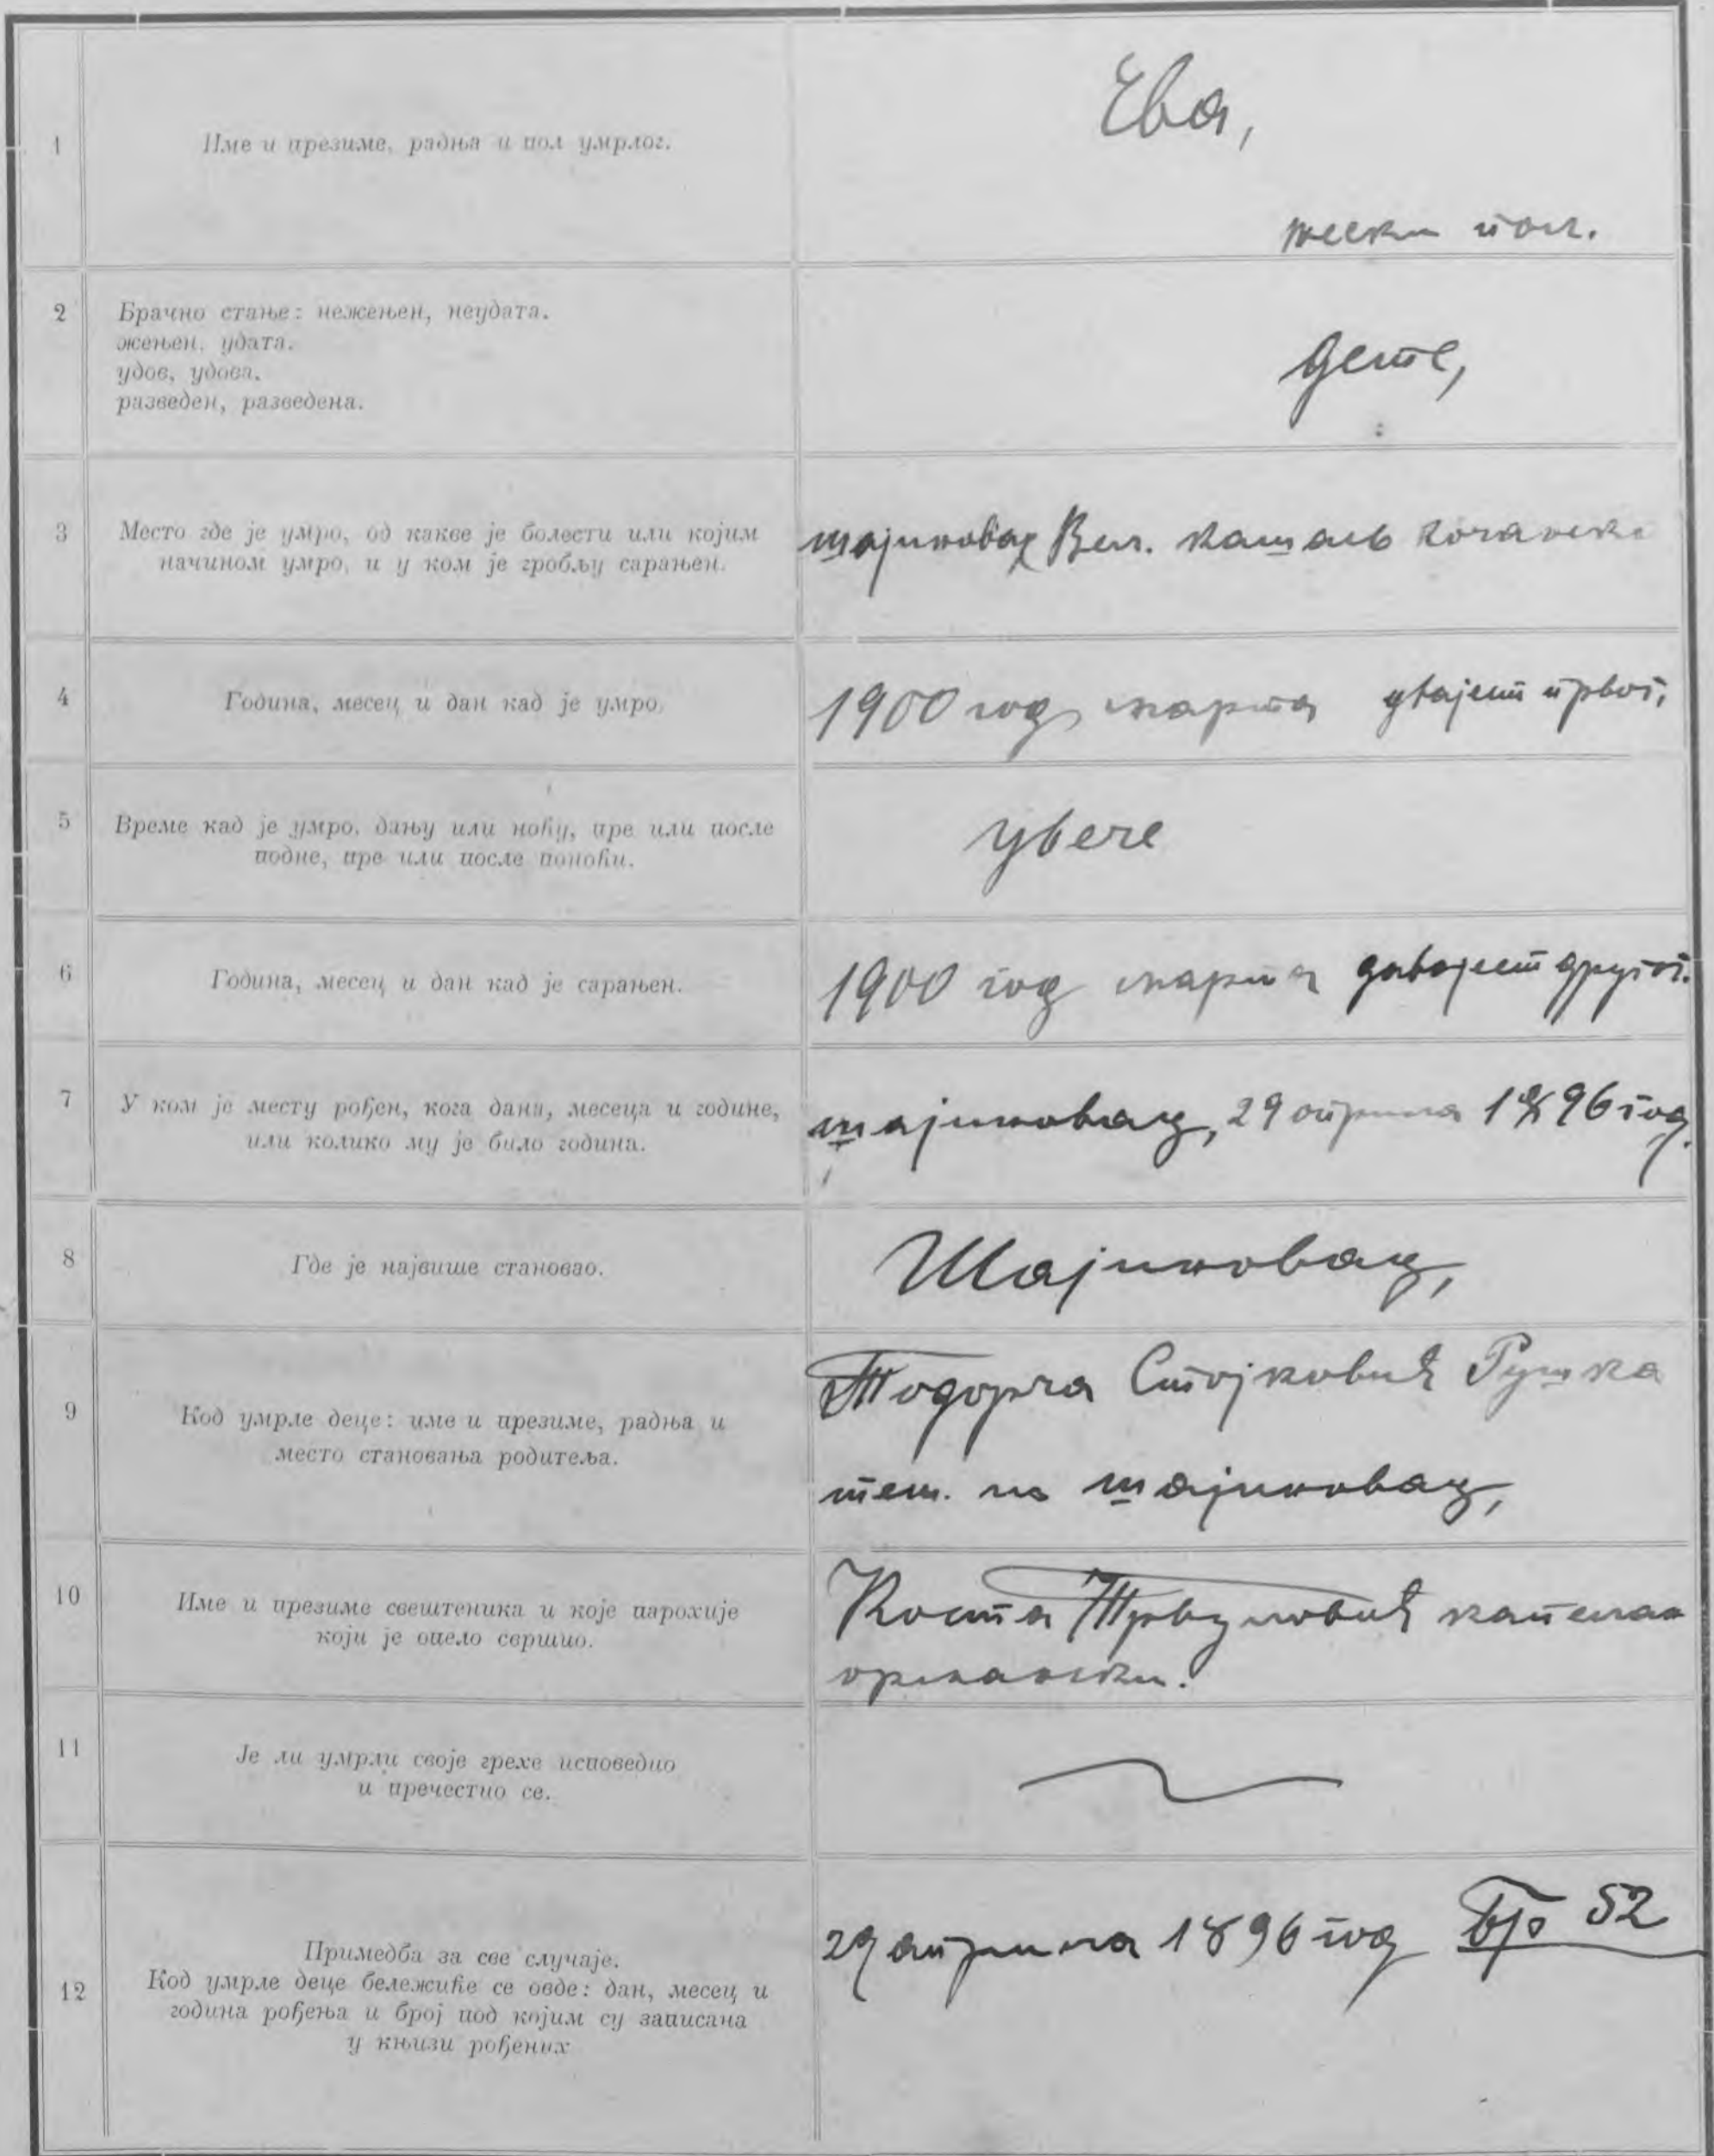 1
Име и презиме, радња и пол умрлог.
Ева,
женски пол.
2
Брачно стање: нежењен, неудата.
жењен, удата.
удов, удова.
разведен, разведена.
дете,
3
Место где је умро, од какве је болести или којим
начином умро, и у ком је гробљу сарањен.
шајиновац Вел. кашаљ
4
Година, месец и дан кад је умро.
1900 год марта двајест првог,
5
Време кад је умро, дању или ноћу, пре или после
подне, пре или после поноћи.
увече
6
Година, месец и дан кад је сарањен.
1900 год марта двајест другог.
7
У ком је месту рођен, кога дана, месеца и године,
или колико му је било година.
шајиновац, 29 априла 1896 год.
8
Где је највише становао.
Шајиновац,
9
Код умрле деце: име и презиме, радња и
место становања родитеља.
Тодорча Стојковић Рушка
теж. из шајиновац,
10
Име и презиме свештеника и које парохије
који је опело сершио.
Коста капелан
ормански.
11
Је ли умрли своје грехе исповедио
и пречестио се.
12
Примедба за све случаје.
Код умрле деце бележиће се овде: дан, месец и
година рођења и број под којим су записана
у књизи рођених
29 априла 1896 год Бр 52